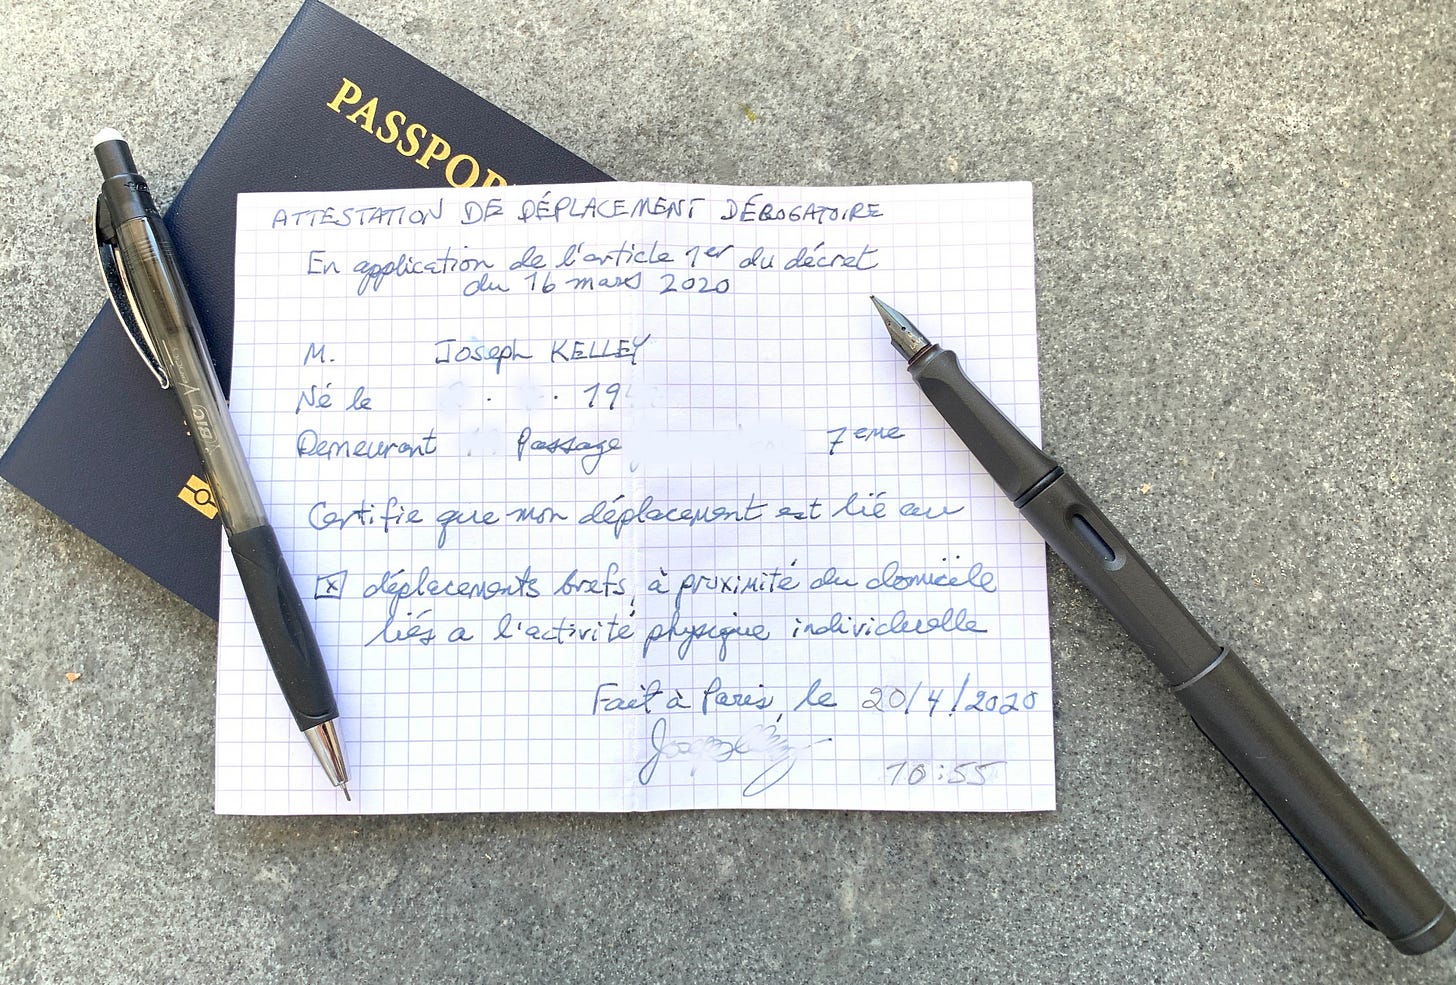 PASSPOR
ATTESTATION DE DÉPLACEMENT DÉROGATOIRE
En application de l'article 1er du décret
du 16 mars 2020
M. Joseph KELLEY
Né le . . 19
Demeurant Passage 7eme
Certifie que mon déplacement est lié au
x déplacements brefs, à proximité du domicile
liés a l'activité physique individuelle
Fait à Paris, le 20/4/2020
10:55
BIC